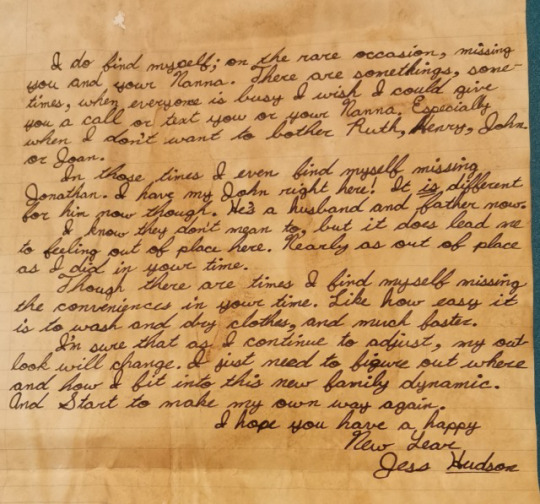 I do find myself; on the rare occasion, missing
you and your Nanna. There are somethings, some-
times, when everyone is busy I wish I could give
you a call or text you or your Nanna. Especially
when I don't want to bother Ruth, Henry, John
or Joan.
In those times I even find myself missing
Jonathan. I have my John right here! It is different
for him now though. He's a husband and father now.
I know they don't mean to, but it does lead me
to feeling out of place here. Nearly as out of place
as I did in your time.
Though there are times I find myself missing
the conveniences in your time. Like how easy it
is to wash and dry clothes, and much faster.
I'm sure that as I continue to adjust, my out
look will change. I just need to figure out where
and how I fit into this new family dynamic.
And Start to make my own way again.
I hope you have a happy
New Year
Jess Hudson